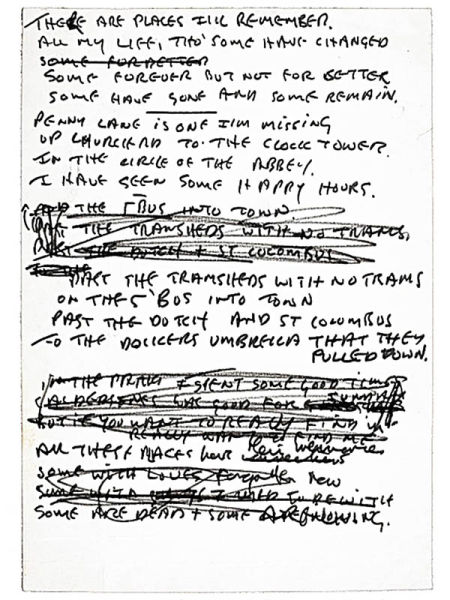 THERE ARE PLACES I'LL REMEMBER.
ALL MY LIFE, THO' SOME HAVE CHANGED
SOME FOR BETTER
SOME FOREVER BUT NOT FOR BETTER
SOME HAVE GONE AND SOME REMAIN.
PENNY LANE IS ONE I'M MISSING
UP CHURCH RD TO THE CLOCK TOWER.
IN THE CIRCLE OF THE ABBEY.
I HAVE SEEN SOME HAPPY HOURS.
THE BUS INTO TOWN.
PAST THE TRAMSHEDS WITH NO TRAMS,
PAST THE DUTCH + ST COLUMBUS
PAST THE TRAMSHEDS WITH NO TRAMS
ON THE 5 BUS INTO TOWN
PAST THE DUTCH AND ST COLUMBUS
TO THE DOCKERS UMBRELLA THAT THEY
PULLED DOWN.
IN THE PARK I SPENT SOME GOOD TIMES
WAS GOOD FOR
BUT IF YOU WANT TO REALLY FIND
REALLY WANT FIND ME
ALL THESE PLACES HAVE
SOME WITH LOVERS
SOME WITH
SOME ARE DEAD + SOME ARE LIVING.